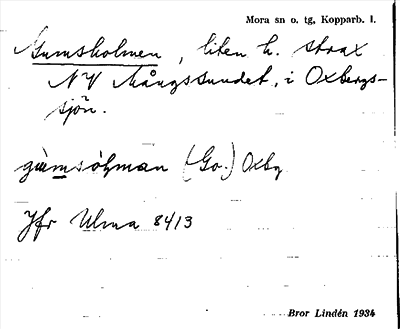 Mora sn o. tg, Kopparb. l.
Gumsholmen, liten h. strax
NV Mångsundet, i Oxbergs-
sjön.
(Go.) Oxbg
Jfr Ulma 8413
Bror Lindén 1934